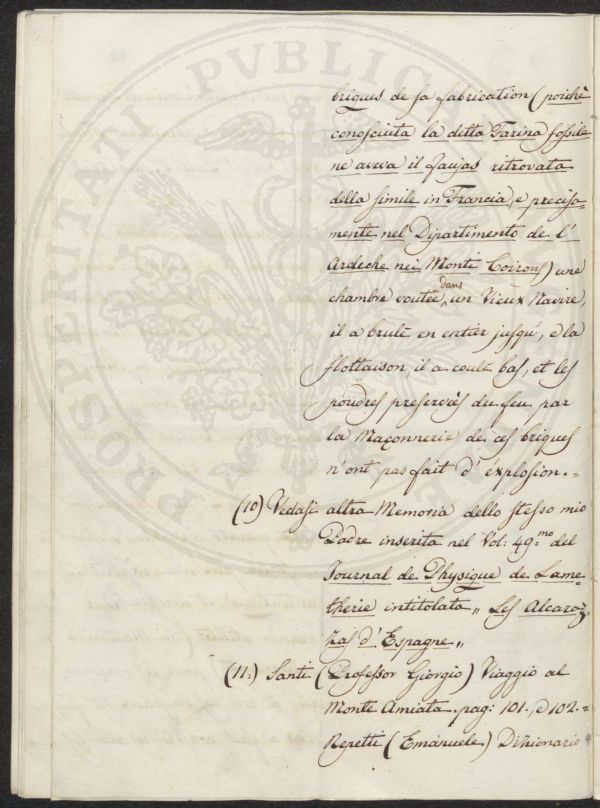 PROSPERITATI PUBLICAE
briques de sa fabrication (poichè
conosciuta la detta Farina fossile
ne aveva il Faujas ritrovata
della simile in Francia, e precisa-
mente nel Dipartimento de l'
Ardeche nei Monti Coirons) une
chambre voutée dans un Vieux Navire,
il a brulè en entier jusqu', à la
flottaison, il a coulé bas, et les
poudres preserveès du feu par
la Maçonnerie de ces briques
n'ont pas fait d'explosion.=
(10) Vedasi altra Memoria dello stesso mio
Padre inserita nel Vol: 49.mo del
Journal de Physique de Lame-
therie intitolata „ Les Alcara-
zas d'Espagne „
(11.) Santi (Professor Giorgio) Viaggio al
Monte Amiata. pag: 101., e 102.=
Repetti (Emanuele) Dizionario